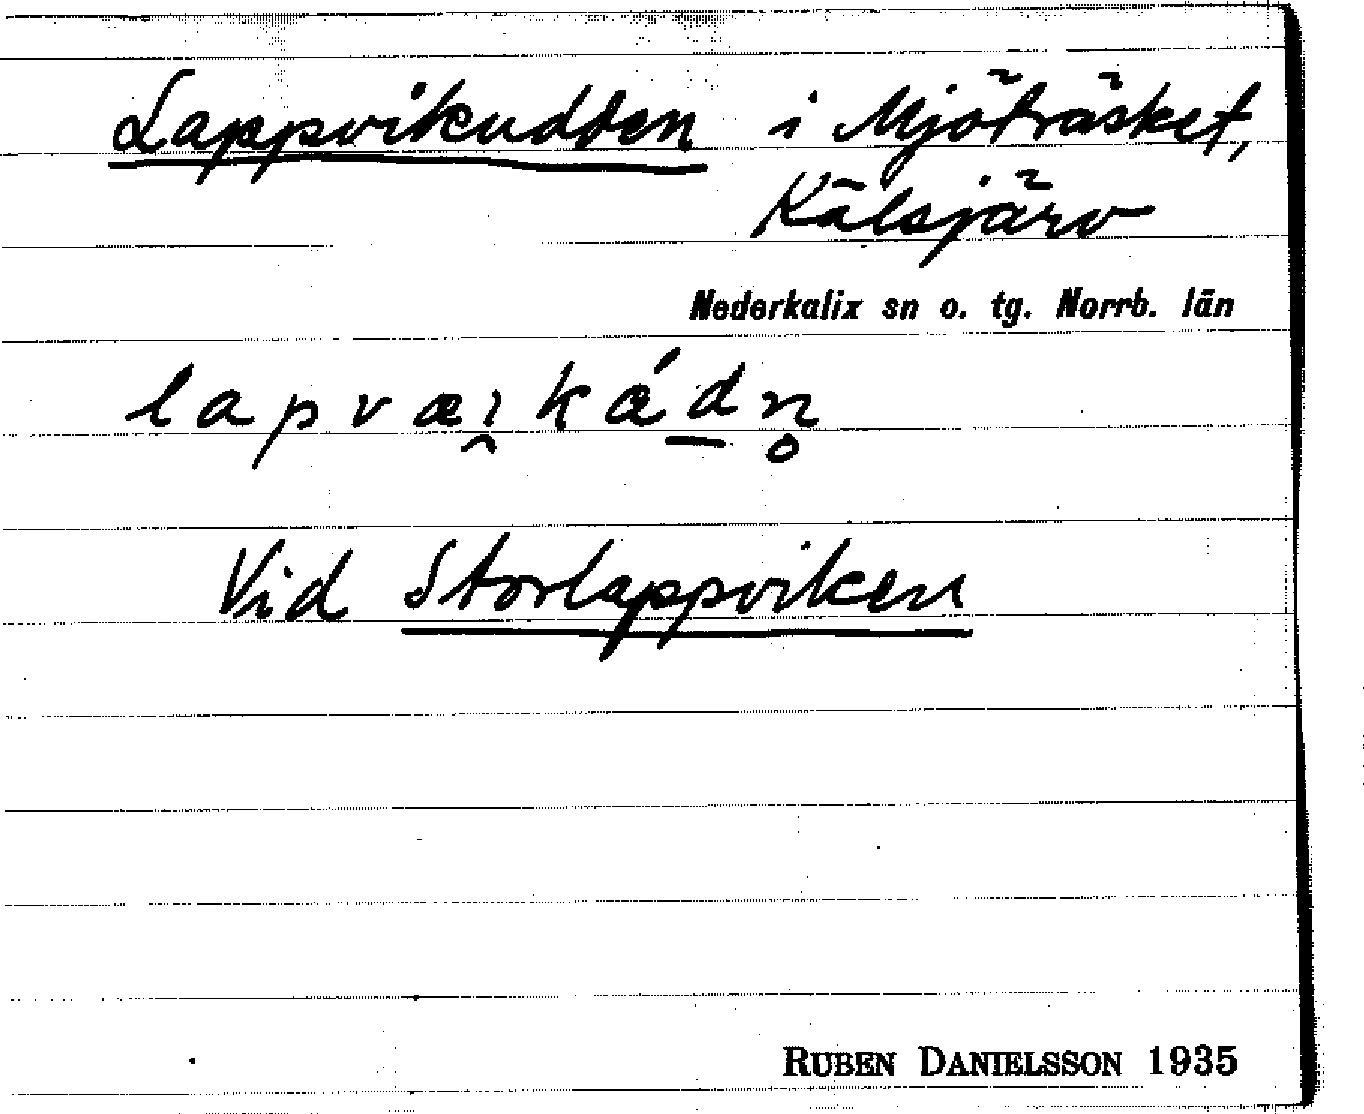 Lappvikudden i Mjöträsket,
Kälsjärv
Nederkalix sn o. tg. Norrb. län
lapvæı̯kǽd̲n̥
Vid Storlappviken
RUBEN DANIELSSON 1935